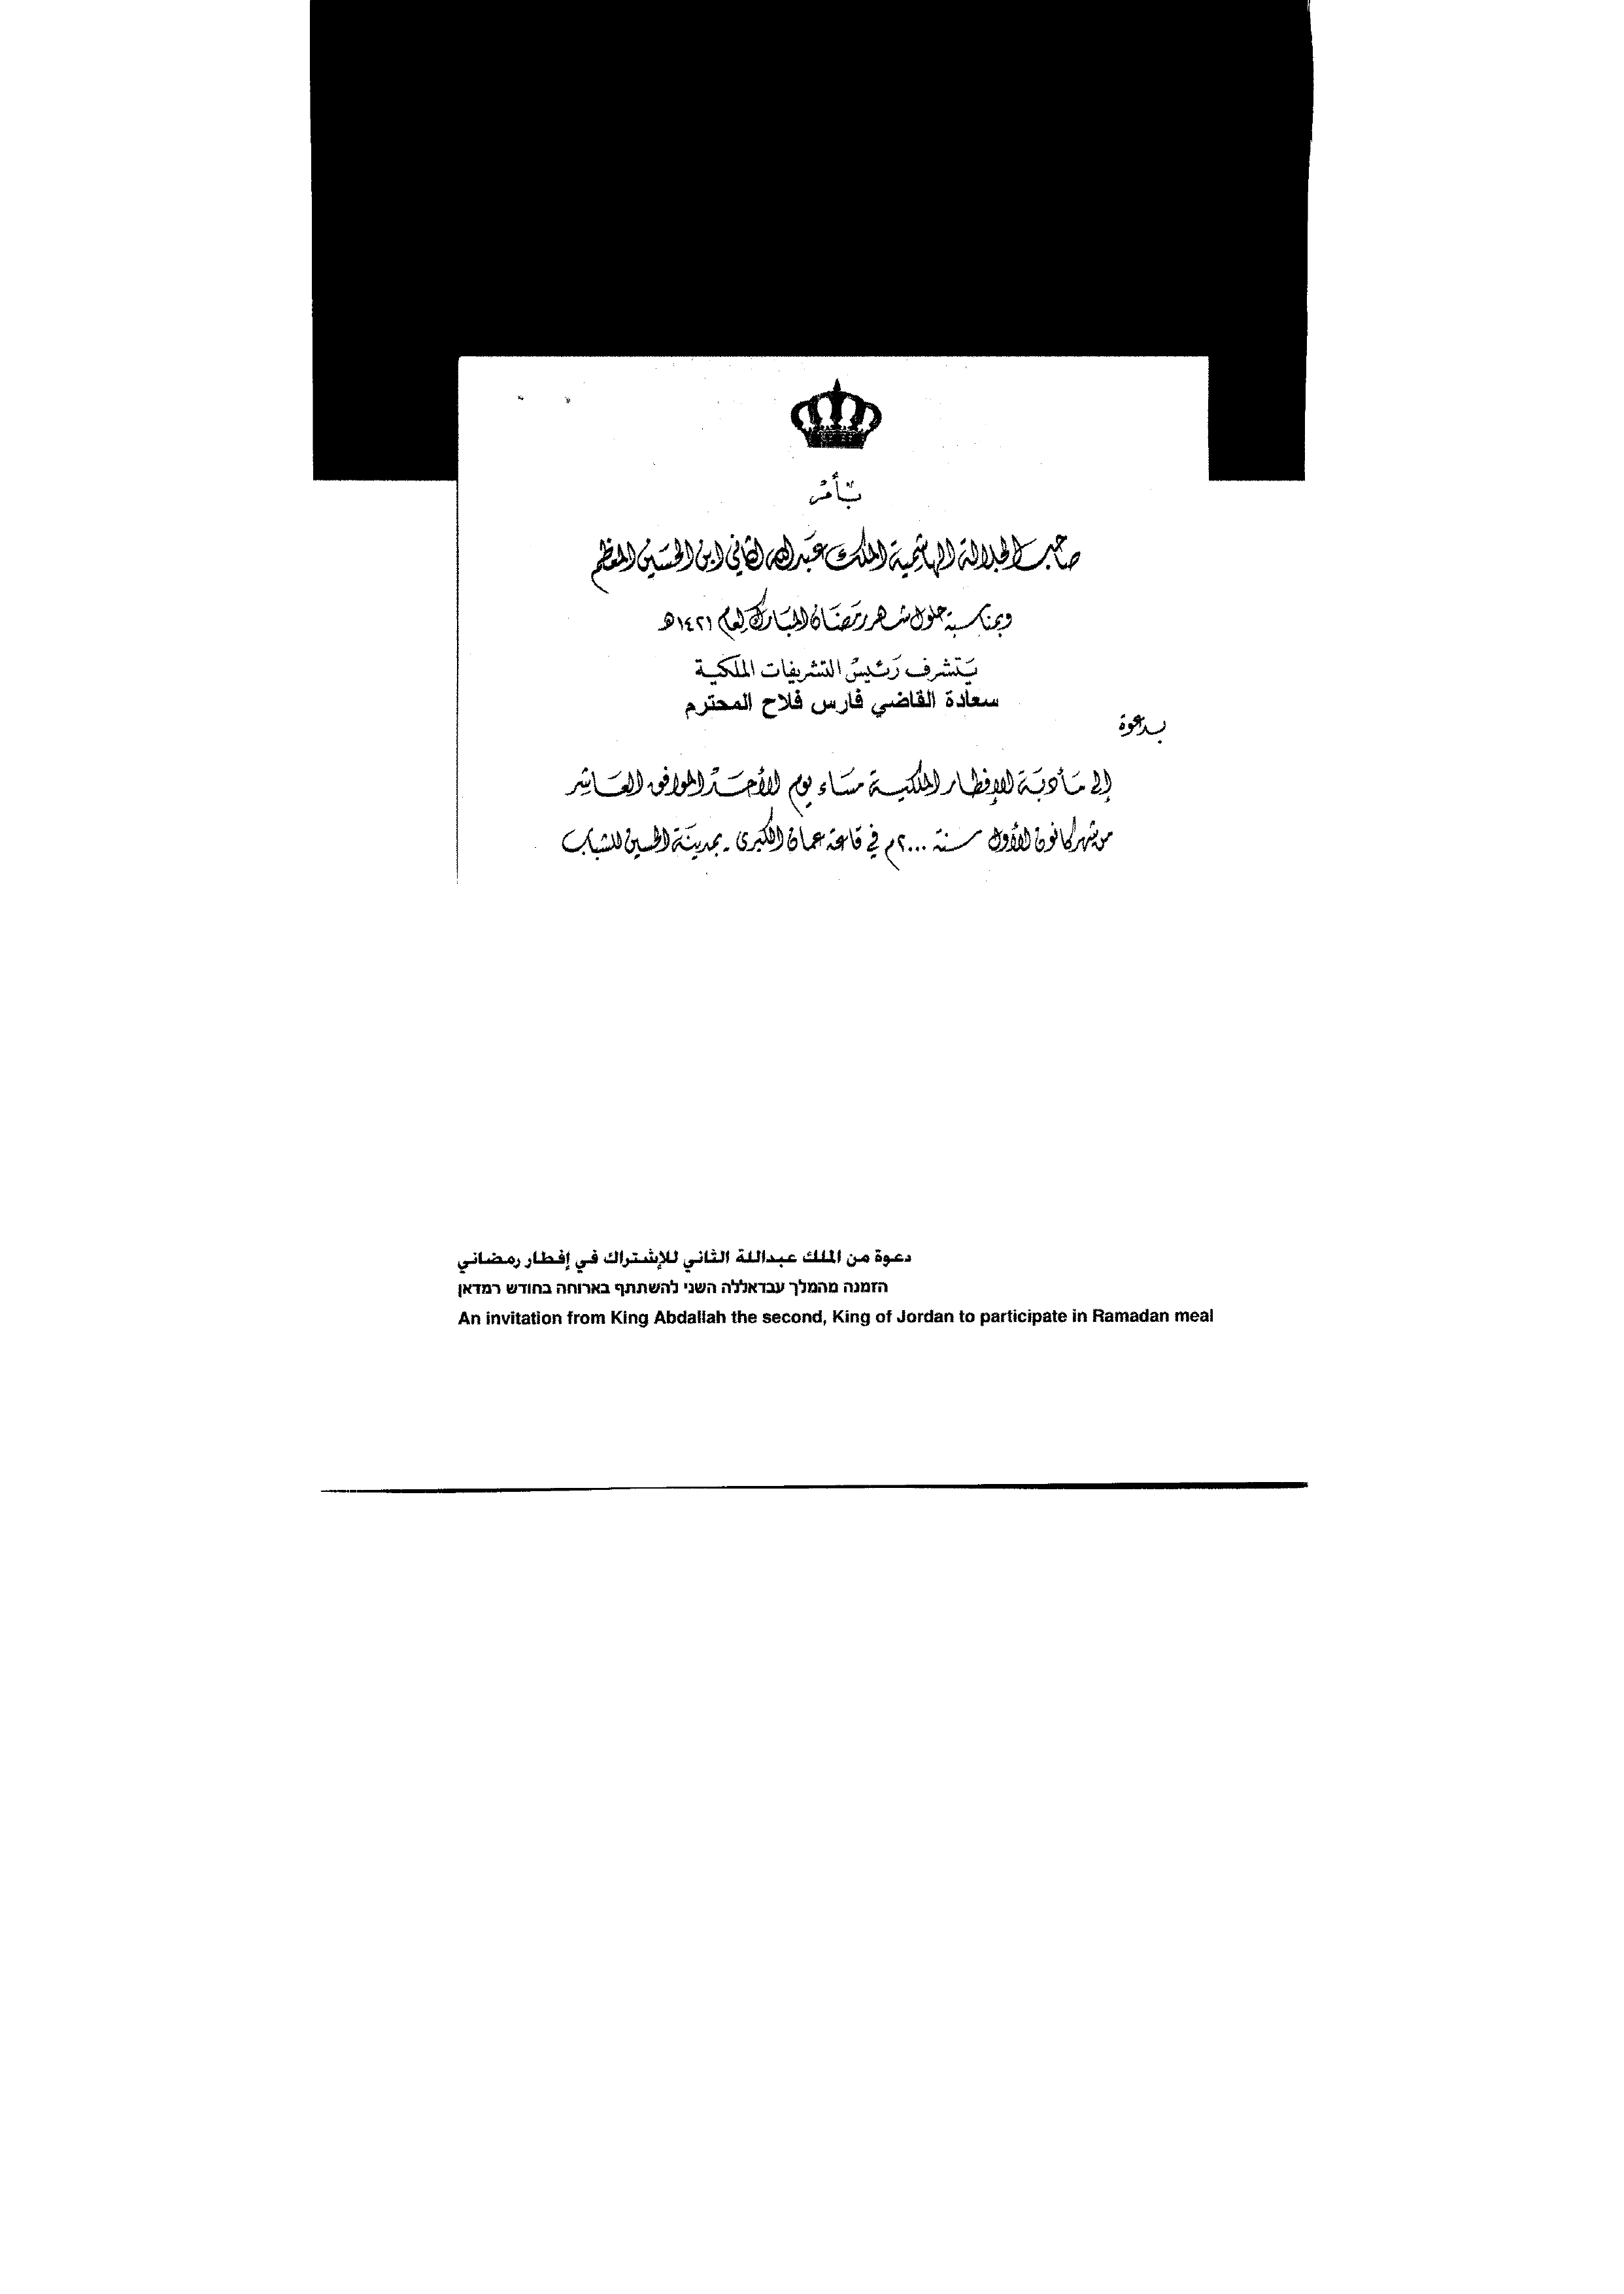 بأمر
صاحب الجلالة الهاشمية الملك عبدالله الثاني ابن الحسين المعظم
وبمناسبة حلول شهر رمضان المبارك لعام ١٤٢١هـ
يتشرف رئيس التشريفات الملكية
سعادة القاضي فارس فلاح المحترم
بدعوة
إلى مأدبة الإفطار الملكية مساء يوم الأحد الموافق العاشر
من شهر كانون الأول سنة ٢٠٠٠م في قاعة عمان الكبرى - بمدينة الحسين للشباب
دعوة من الملك عبداللة الثاني للإشتراك في إفطار رمضاني
הזמנה מהמלך עבדאללה השני להשתתף בארוחה בחודש רמדאן
An invitation from King Abdallah the second, King of Jordan to participate in Ramadan meal